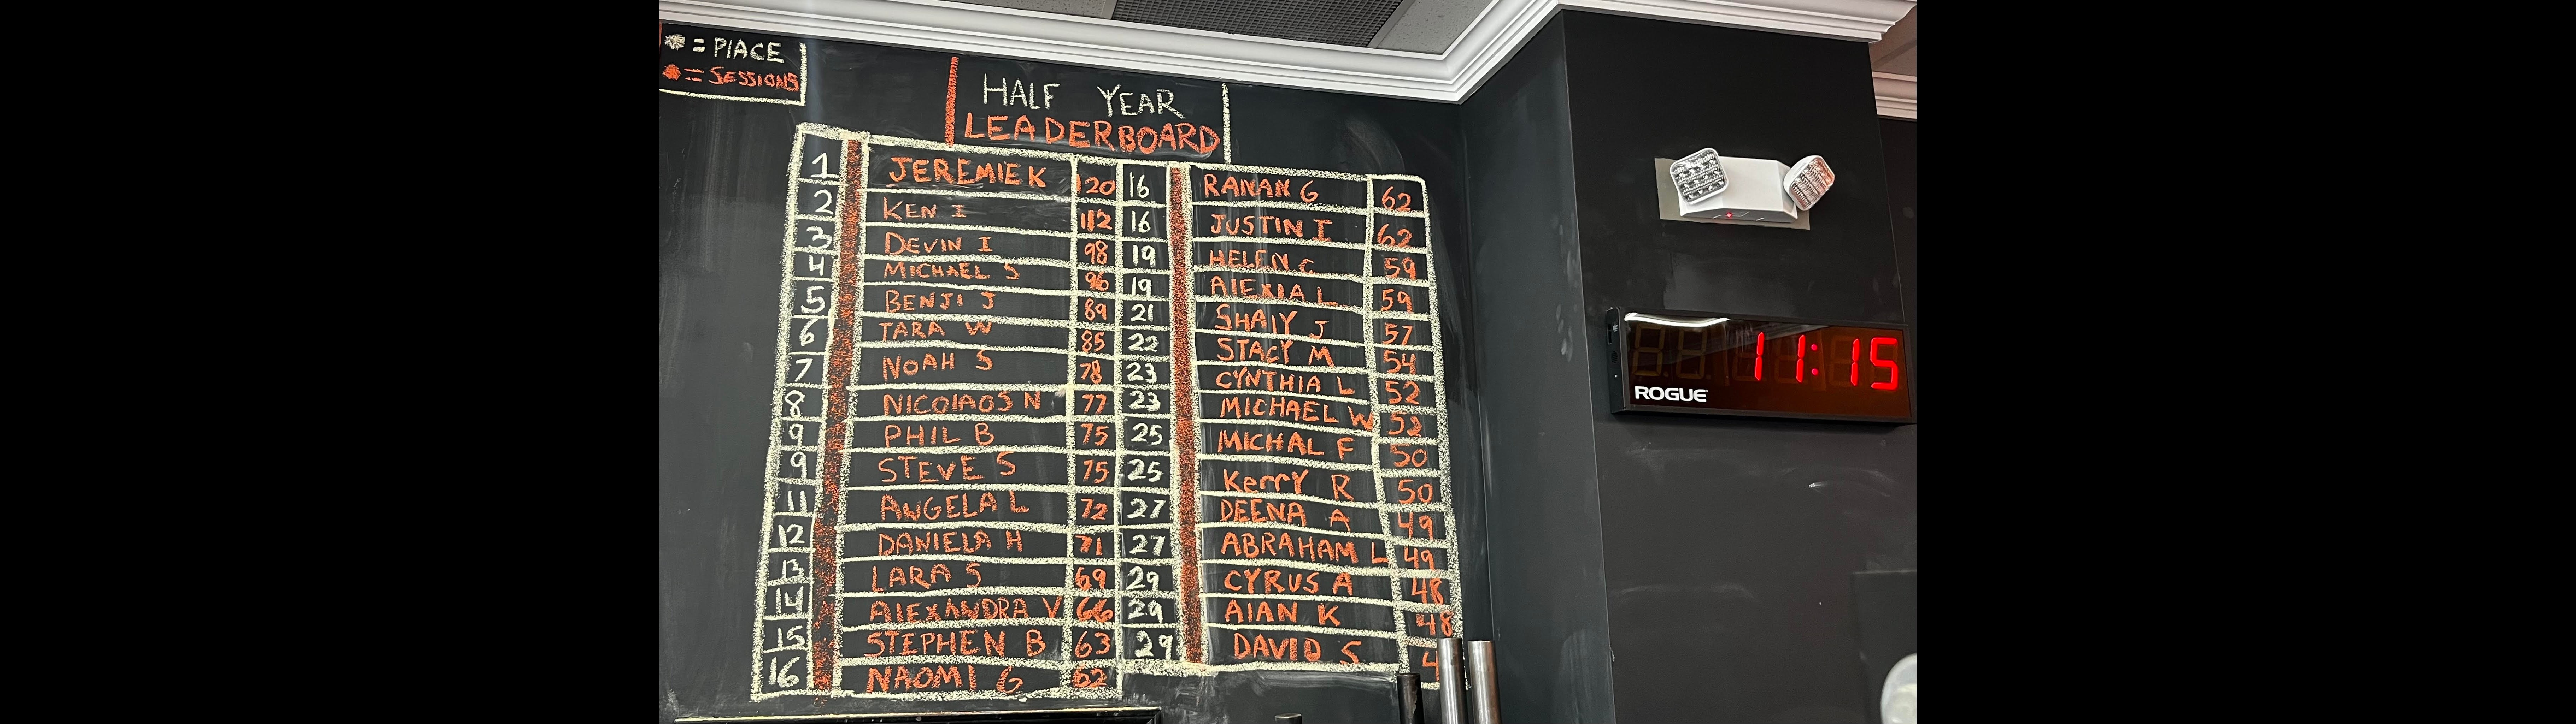 = PlACE
= SESSIONS
HALF YEAR
LEADERBOARD
1 JEREMIE K 120
2 KEN I 112
3 DEVIN I 98
4 MICHAEL S 96
5 BENJI J 89
6 TARA W 85
7 NOAH S 78
8 NICOlAOS N 77
9 PHIL B 75
9 STEVE S 75
11 ANGELA L 72
12 DANIELA H 71
13 LARA S 69
14 AlEXANDRA V 66
15 STEPHEN B 63
16 NAOMI G 62
16 RANAN G 62
16 JUSTIN I 62
19 HELEN C 59
19 AlEXIA L 59
21 SHAlY J 57
22 STACY M 54
23 CYNTHIA L 52
23 MICHAEL W 52
25 MICHAL F 50
25 Kerry R 50
27 DEENA A 49
27 ABRAHAM L 49
29 CYRUS A 48
29 AlAN K 48
29 DAVID S 4
11:15
ROGUE